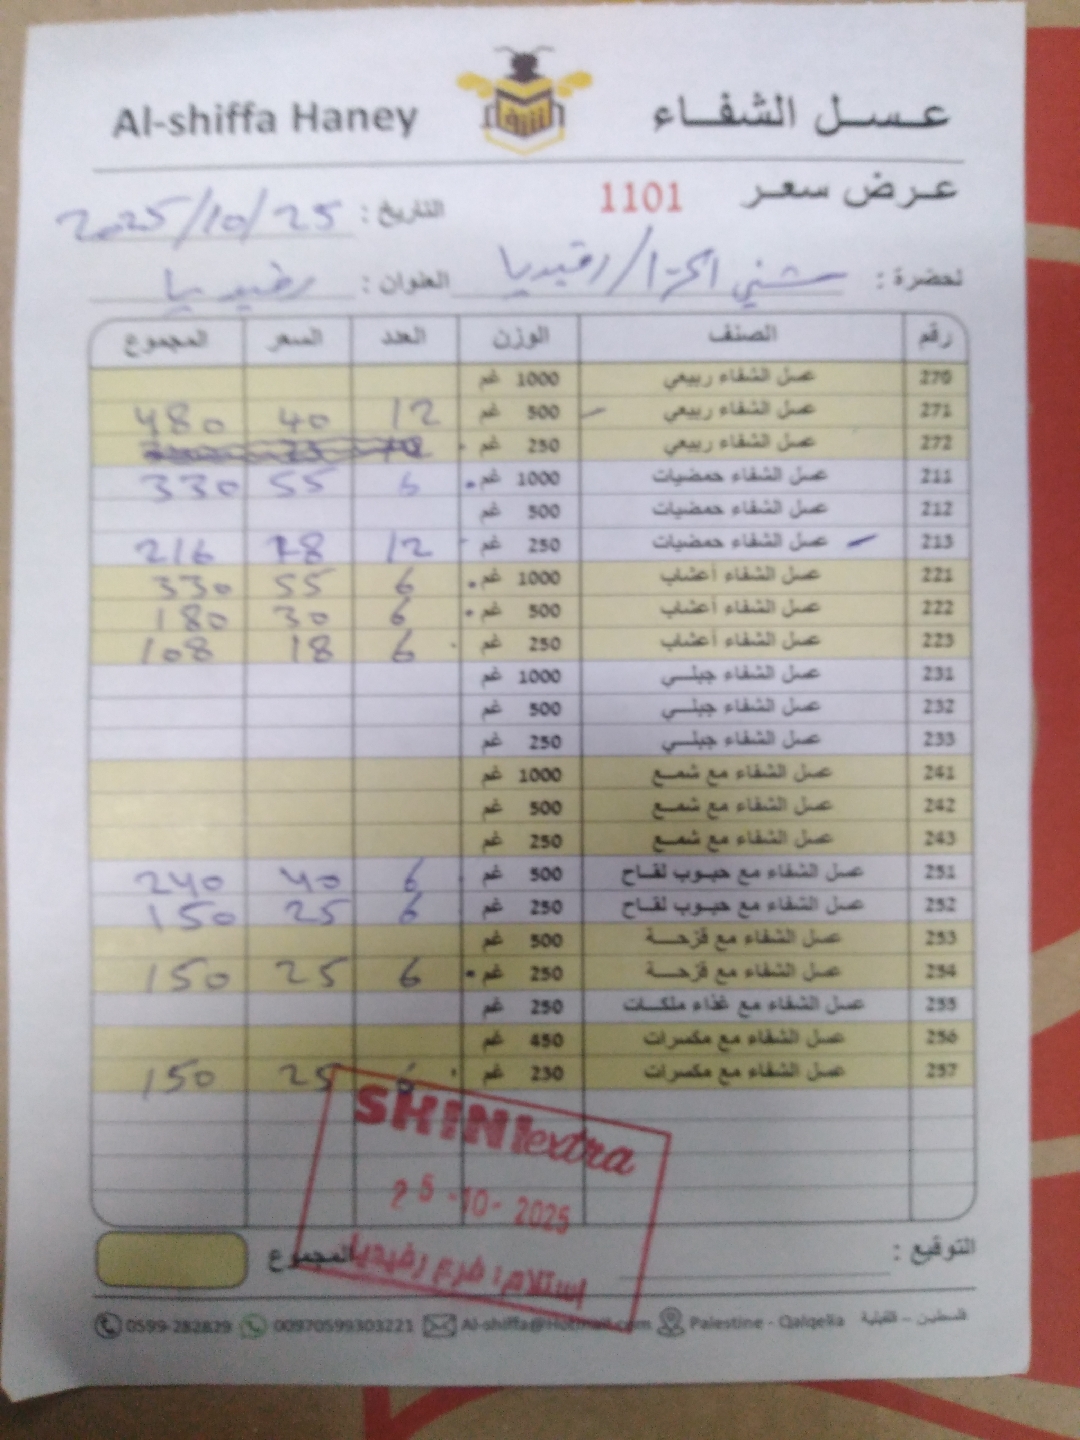 Al-shiffa Haney
عسل الشفاء
عرض سعر 1101
التاريخ : 2025/10/25
لحضرة : شني اكسترا/رفيديا العنوان : رفيديا
رقم الصنف الوزن العدد السعر المجموع
270 عسل الشفاء ربيعي 1000 غم
271 عسل الشفاء ربيعي 500 غم 12 40 480
272 عسل الشفاء ربيعي 250 غم
211 عسل الشفاء حمضيات 1000 غم 6 55 330
212 عسل الشفاء حمضيات 500 غم
213 عسل الشفاء حمضيات 250 غم 12 18 216
221 عسل الشفاء أعشاب 1000 غم 6 55 330
222 عسل الشفاء أعشاب 500 غم 6 30 180
223 عسل الشفاء أعشاب 250 غم 6 18 108
231 عسل الشفاء جبلي 1000 غم
232 عسل الشفاء جبلي 500 غم
233 عسل الشفاء جبلي 250 غم
241 عسل الشفاء مع شمع 1000 غم
242 عسل الشفاء مع شمع 500 غم
243 عسل الشفاء مع شمع 250 غم
251 عسل الشفاء مع حبوب لقاح 500 غم 6 40 240
252 عسل الشفاء مع حبوب لقاح 250 غم 6 25 150
253 عسل الشفاء مع قزحة 500 غم
254 عسل الشفاء مع قزحة 250 غم 6 25 150
255 عسل الشفاء مع غذاء ملكات 250 غم
256 عسل الشفاء مع مكسرات 450 غم
257 عسل الشفاء مع مكسرات 230 غم 6 25 150
SHINI extra
25 -10- 2025
استلام: فرع رفيديا
التوقيع :
المجموع
0599-282829 00970599303221 Al-shiffa@Hotmail.com Palestine - Qalqelia فلسطين - قلقيلية